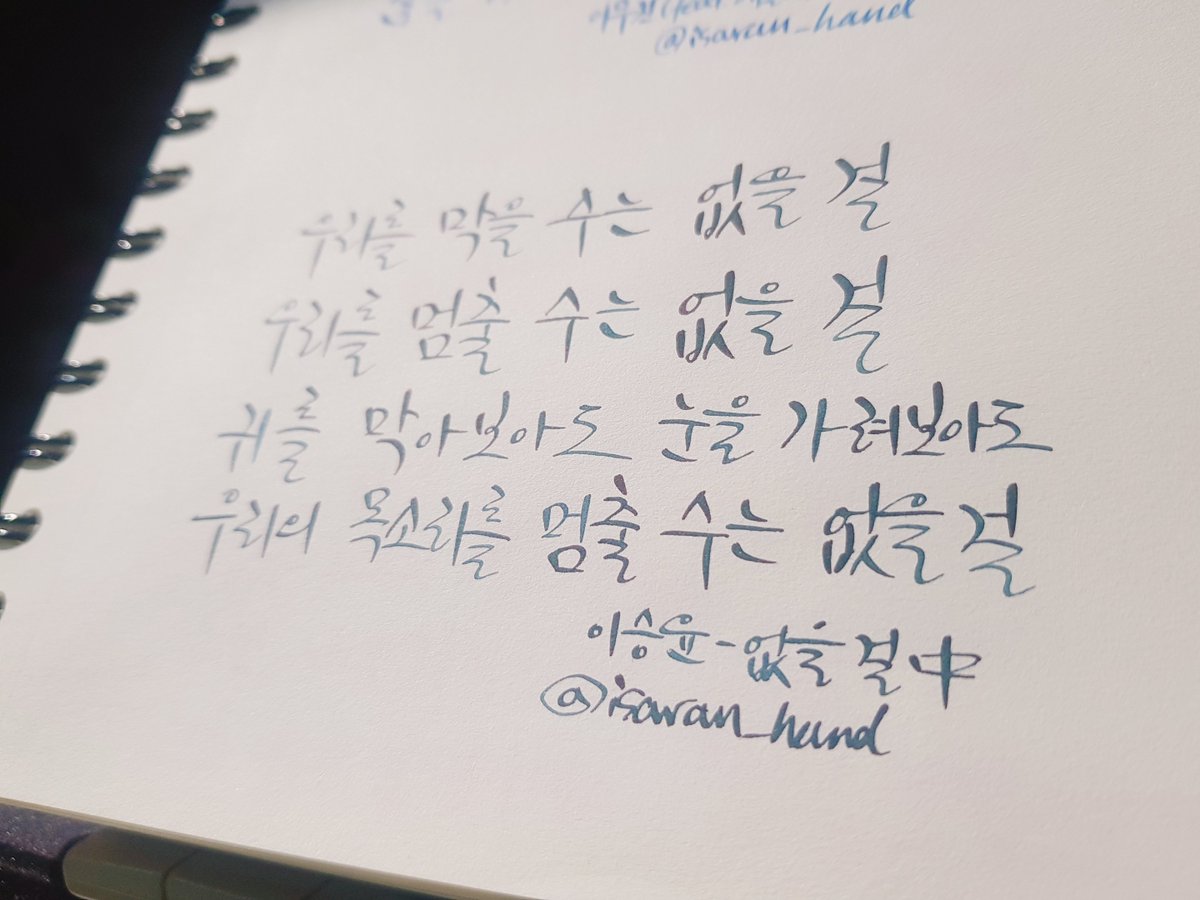 @isavan_hand
우리를 막을 수는 없을 걸
우리를 멈출 수는 없을 걸
귀를 막아보아도 눈을 가려보아도
우리의 목소리를 멈출 수는 없을 걸
이승윤-없을 걸 中
@isavan_hand